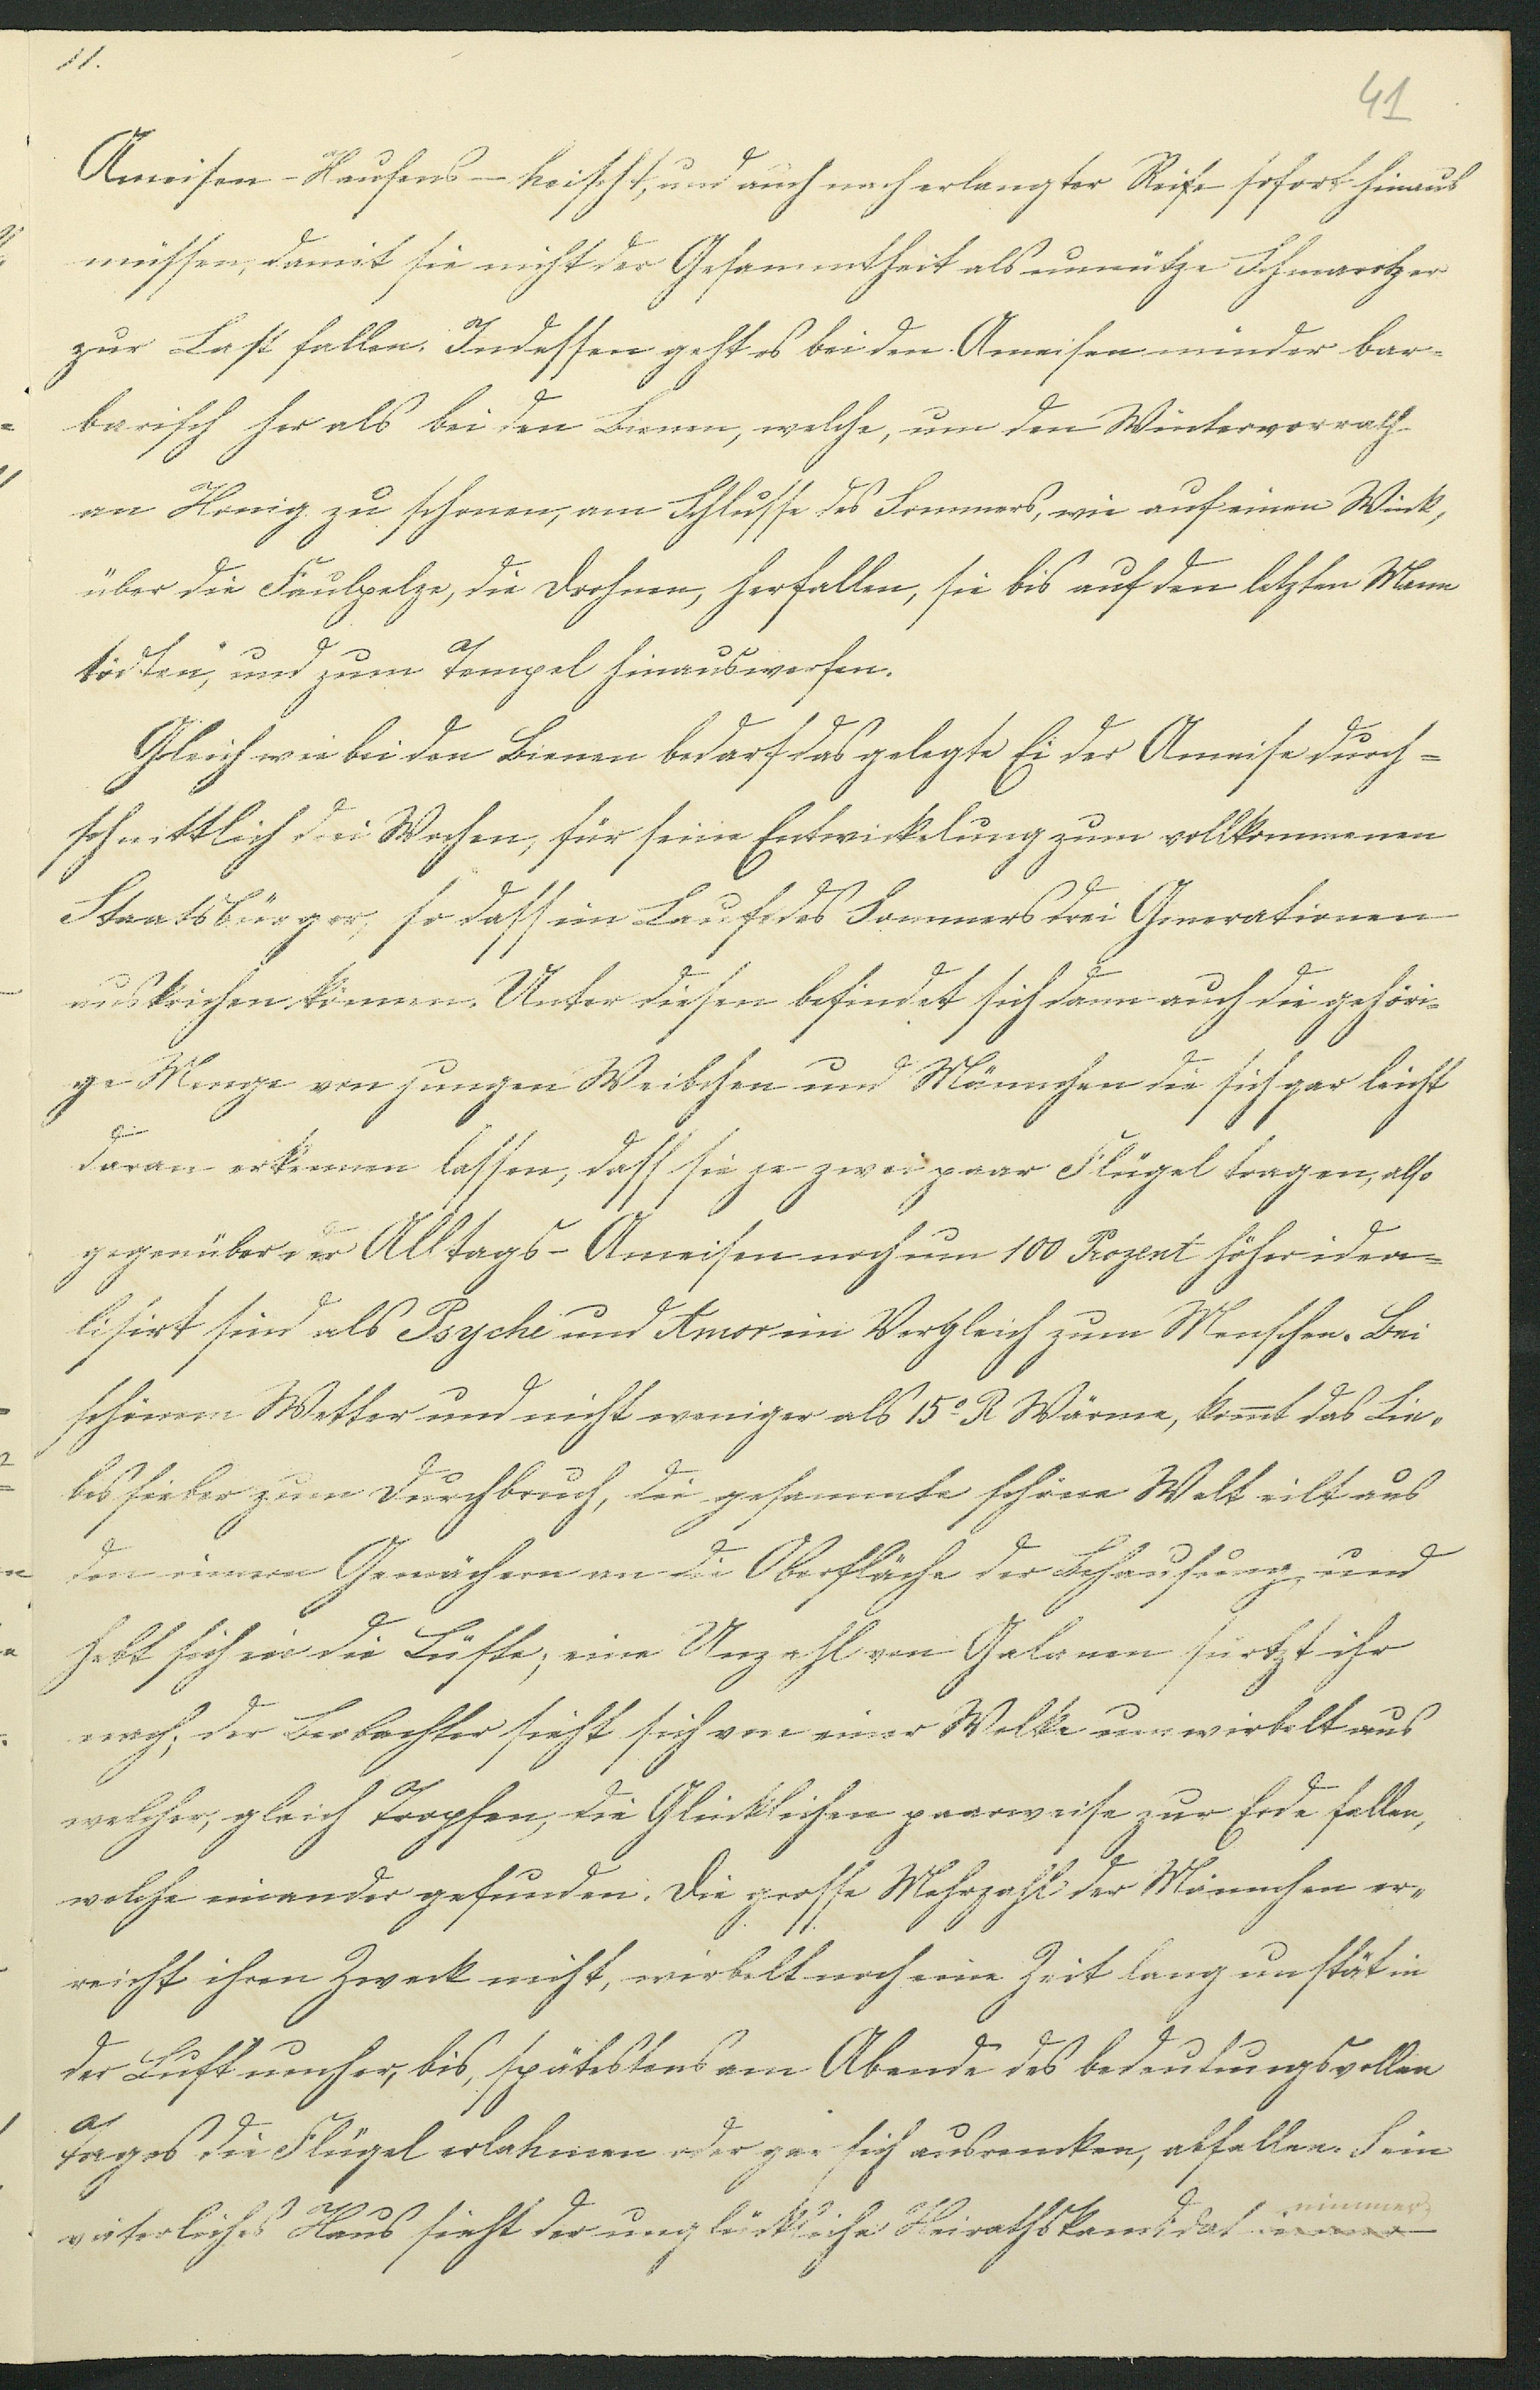 11.
41
Ameisen-Haufens – heischt, und auch nach erlangter Reife sofort hinaus
müssen, damit sie nicht der Gesammtheit als unnütze Schmarotzer
zur Last fallen. Indessen geht es bei den Ameisen minder bar-
barisch her als bei den Bienen, welche, um den Wintervorrath
an Honig zu schonen, am Schlusse des Sommers, wie auf einen Wink,
über die Faulpelze, die Drohnen, herfallen, sie bis auf den letzten Mann
tödten, und zum Tempel hinauswerfen.
Gleich wie bei den Bienen bedarf das gelegte Ei der Ameise durch=
schnittlich drei Wochen, für seine Entwickelung zum vollkommenen
Staatsbürger, so dass im Laufe des Sommers drei Generationen
auskriechen können. Unter diesen befindet sich dann auch die gehöri-
ge Menge von jungen Weibchen und Männchen die sich gar leicht
daran erkennen lassen, dass sie je zwei paar Flügel tragen, also
gegenüber der Alltags-Ameisen noch um 100 Prozent höher idea=
lisirt sind als Psyche und Amor im Vergleich zum Menschen. Bei
schönem Wetter und nicht weniger als 15° R Wärme, kommt das Lie-
besfieber zum Durchbruch, die gesammte schöne Welt eilt aus
den innern Gemächern an die Oberfläche der Behausung, und
hebt sich in die Lüfte; eine Unzahl von Galanen stürtzt ihr
nach; der Beobachter sieht sich von einer Wolke umwirbelt aus
welcher, gleich Tropfen, die Glücklichen paarweise zur Erde fallen,
welche einander gefunden. Die grosse Mehrzahl der Männchen er-
reicht ihren Zweck nicht, wirbelt noch eine Zeit lang unstät in
der Luft umher, bis, spätestens am Abende des bedeutungsvollen
Tages die Flügel erlahmen oder gar sich ausrenken, abfallen. Sein
väterliches Haus sieht der unglückliche Heirathskandidat immer
nimmer